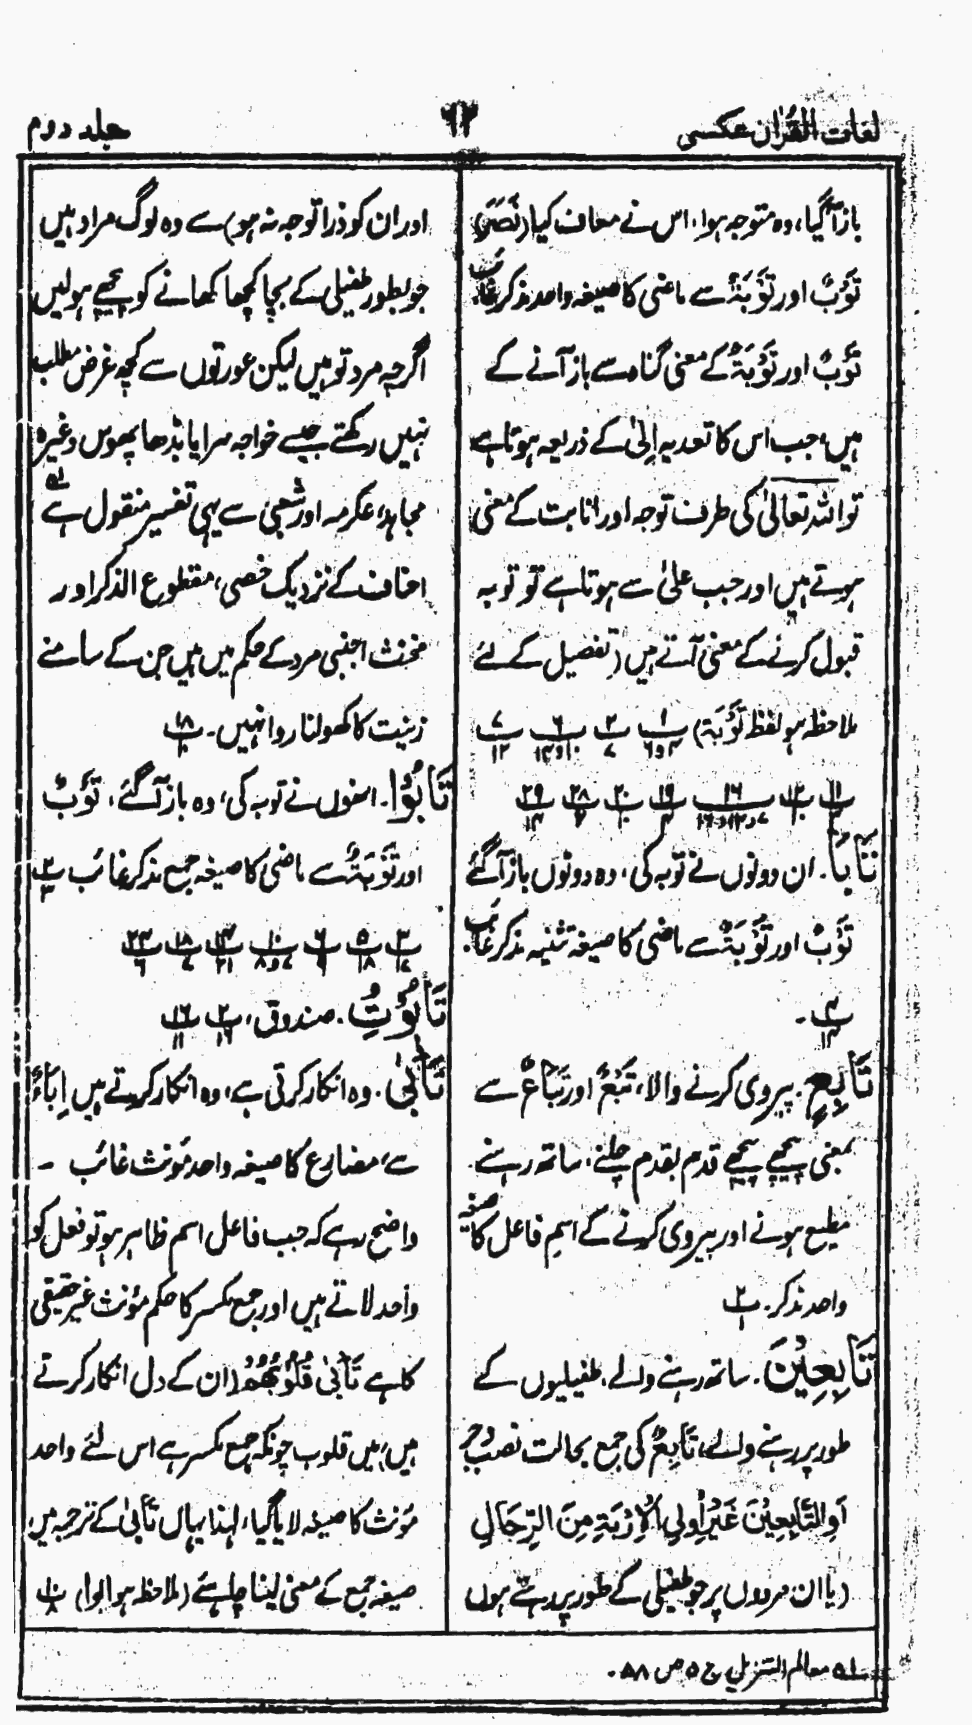 لغات القرآن عکسی
۱۲
جلد دوم
باز آ گیا، وہ متوجہ ہوا، اس نے معاف کیا (نَصَرَ)
تَوْبٌ اور تَوْبَۃٌ سے ماضی کا صیغہ واحد مذکر غائب
تَوْبٌ اور تَوْبَۃٌ کے معنی گناہ سے باز آنے کے
ہیں، جب اس کا تعدیہ اِلیٰ کے ذریعہ ہوتا ہے
تو اللہ تعالیٰ کی طرف توجہ اور انابت کے معنی
ہوتے ہیں اور جب علیٰ سے ہوتا ہے تو توبہ
قبول کرنے کے معنی آتے ہیں (تفصیل کے لئے
ملاحظہ ہو لفظ تَوْبَۃ)
تَابَا. ان دونوں نے توبہ کی، وہ دونوں باز آ گئے
تَوْبٌ اور تَوْبَۃٌ سے ماضی کا صیغہ تثنیہ مذکر غائب.
تَابِعٍ. پیروی کرنے والا، تَبَعٌ اور تَبَاعٌ سے
بمعنی پیچھے پیچھے قدم بقدم چلنے، ساتھ رہنے.
مطیع ہونے اور پیروی کرنے کے اسمِ فاعل کا صیغہ
واحد مذکر. پ۲
تَابِعِیْنَ. ساتھ رہنے والے، طفیلیوں کے
طور پر رہنے والے، تَابِعٌ کی جمع بحالت نصب و جر
اَوِ التَّابِعِیْنَ غَیْرِ اُولِی الْاِرْبَۃِ مِنَ الرِّجَالِ
(یا ان مردوں پر جو طفیلی کے طور پر رہتے ہوں
اور ان کو ذرا توجہ نہ ہو) سے وہ لوگ مراد ہیں
جو بطور طفیلی کے بچا کھچا کھانے کو پیچھے ہولیں
اگرچہ مرد تو ہیں لیکن عورتوں سے کچھ غرض مطلب
نہیں رکھتے جیسے خواجہ سرا یا بڈھا پھوس وغیرہ
مجاہد، عکرمہ اور شعبی سے یہی تفسیر منقول ہے لہ
احناف کے نزدیک خصی، مقطوع الذکر اور
مخنث اجنبی مرد کے حکم میں ہیں جن کے سامنے
زینت کا کھولنا روا نہیں۔ ۱۸
تَابُوْا. انھوں نے توبہ کی، وہ باز آ گئے، تَوْبٌ
اور تَوْبَۃٌ سے ماضی کا صیغہ جمع مذکر غائب
تَابُوْتُ. صندوق،
تَأْبیٰ. وہ انکار کرتی ہے، وہ انکار کرتے ہیں اِبَاءٌ
سے، مضارع کا صیغہ واحد مؤنث غائب ۔
واضح رہے کہ جب فاعل اسم ظاہر ہو تو فعل کو
واحد لاتے ہیں اور جمع مکسر کا حکم مؤنث غیر حقیقی
کا ہے تَأْبیٰ قُلُوْبُھُمْ (ان کے دل انکار کرتے
ہیں) میں قلوب چونکہ جمع مکسر ہے اس لئے واحد
مؤنث کا صیغہ لایا گیا، لہذا یہاں تَأْبیٰ کے ترجمہ میں
صیغہ جمع کے معنی لینا چاہئے (ملاحظہ ہو ابوا)
لہ معالم التنزیل ج ۵ ص ۵۸.